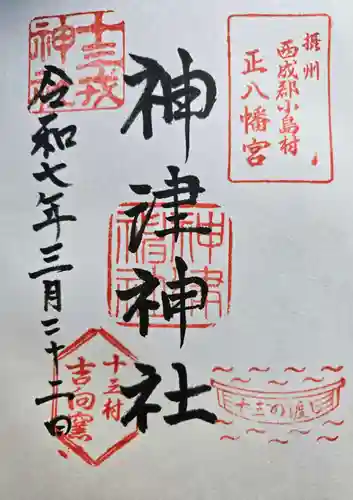 摂州
西成郡小島村
正八幡宮
神津神社
神津神社
十三戎神社
令和七年三月二十二日
十三村
吉向窯
十三の渡し